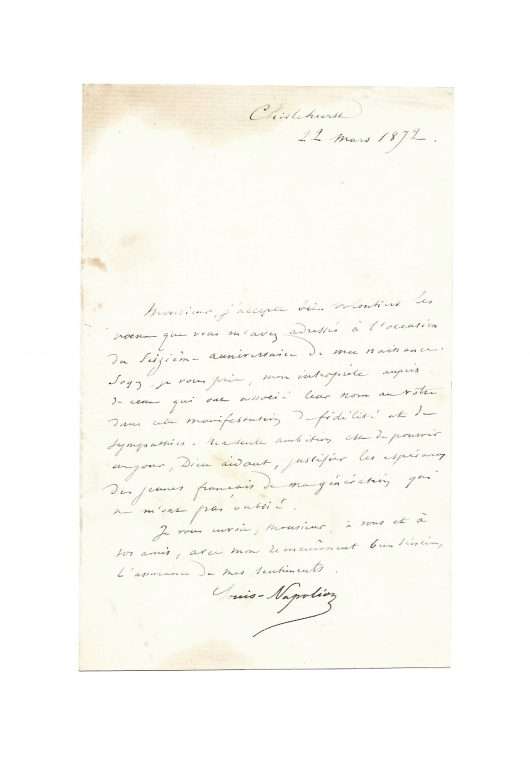 Chislehurst
22 mars 1872.
Monsieur, j'accepte bien volontiers les
vœux que vous m'avez adressé à l'occasion
du Seizième anniversaire de ma naissance.
Soyez je vous prie, mon interprète auprès
de ceux qui ont associé leur nom au vôtre
dans cette manifestation de fidélité et de
sympathie. Ma seule ambition est de pouvoir
un jour, Dieu aidant, justifier les espérances
des jeunes français de ma génération qui
ne m'ont pas oublié.
Je vous envoie, Monsieur, à vous et à
vos amis, avec mon remerciement bien sincère,
l'assurance de mes sentiments.
Louis-Napoléon